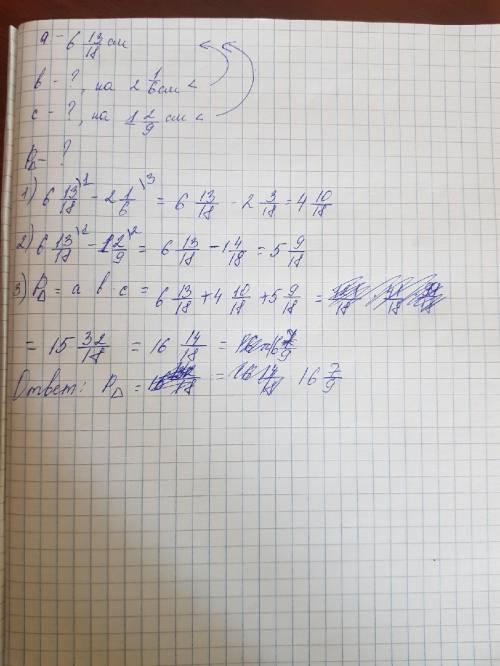 a - 6 13/18 см
в - ?, на 2 1/6 см <
с - ?, на 1 2/9 см <
P△ - ?
1) 6 13/18 \1 - 2 1/6 \3 = 6 13/18 - 2 3/18 = 4 10/18
2) 6 13/18 \2 - 1 2/9 \2 = 6 13/18 - 1 4/18 = 5 9/18
3) P△ = a в с = 6 13/18 + 4 10/18 + 5 9/18 =
= 15 32/18 = 16 14/18 = 16 7/9
Ответ: P△ = = 16 7/9